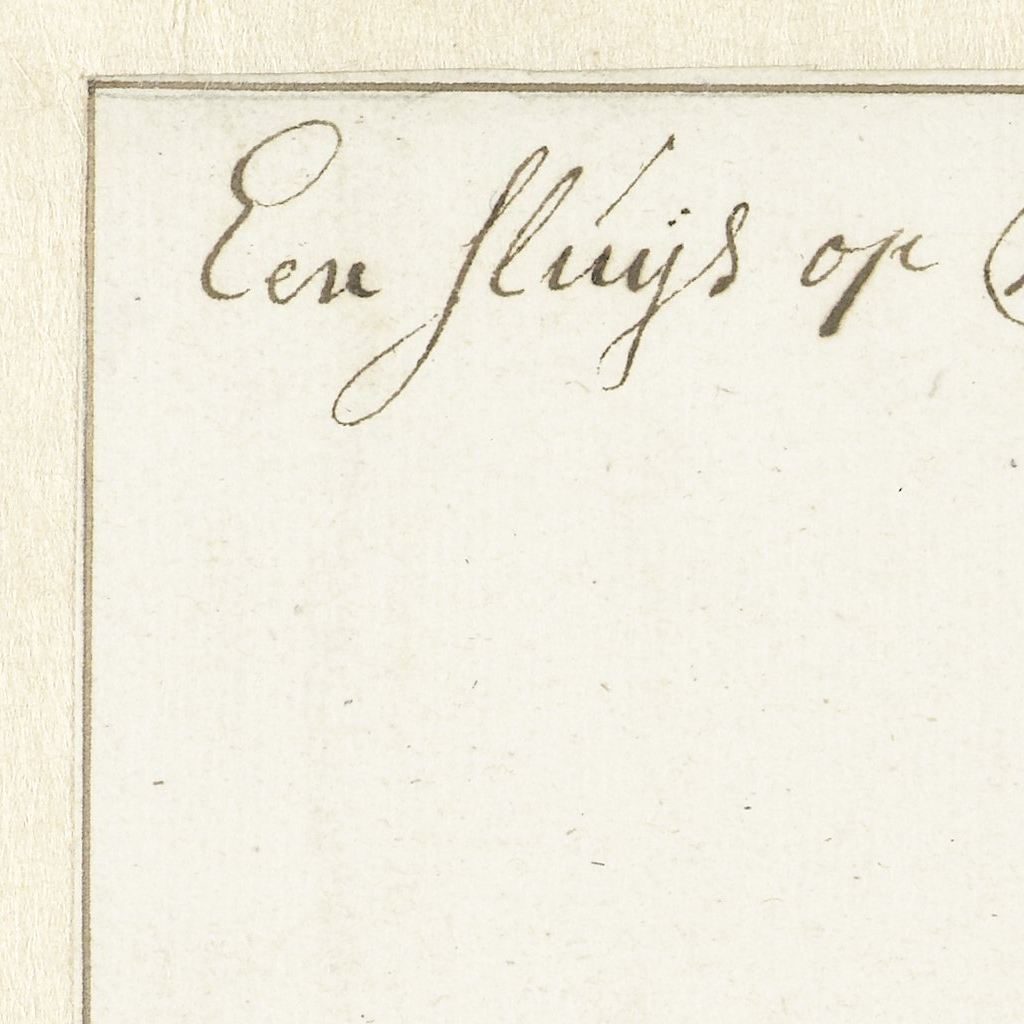 Een sluys op